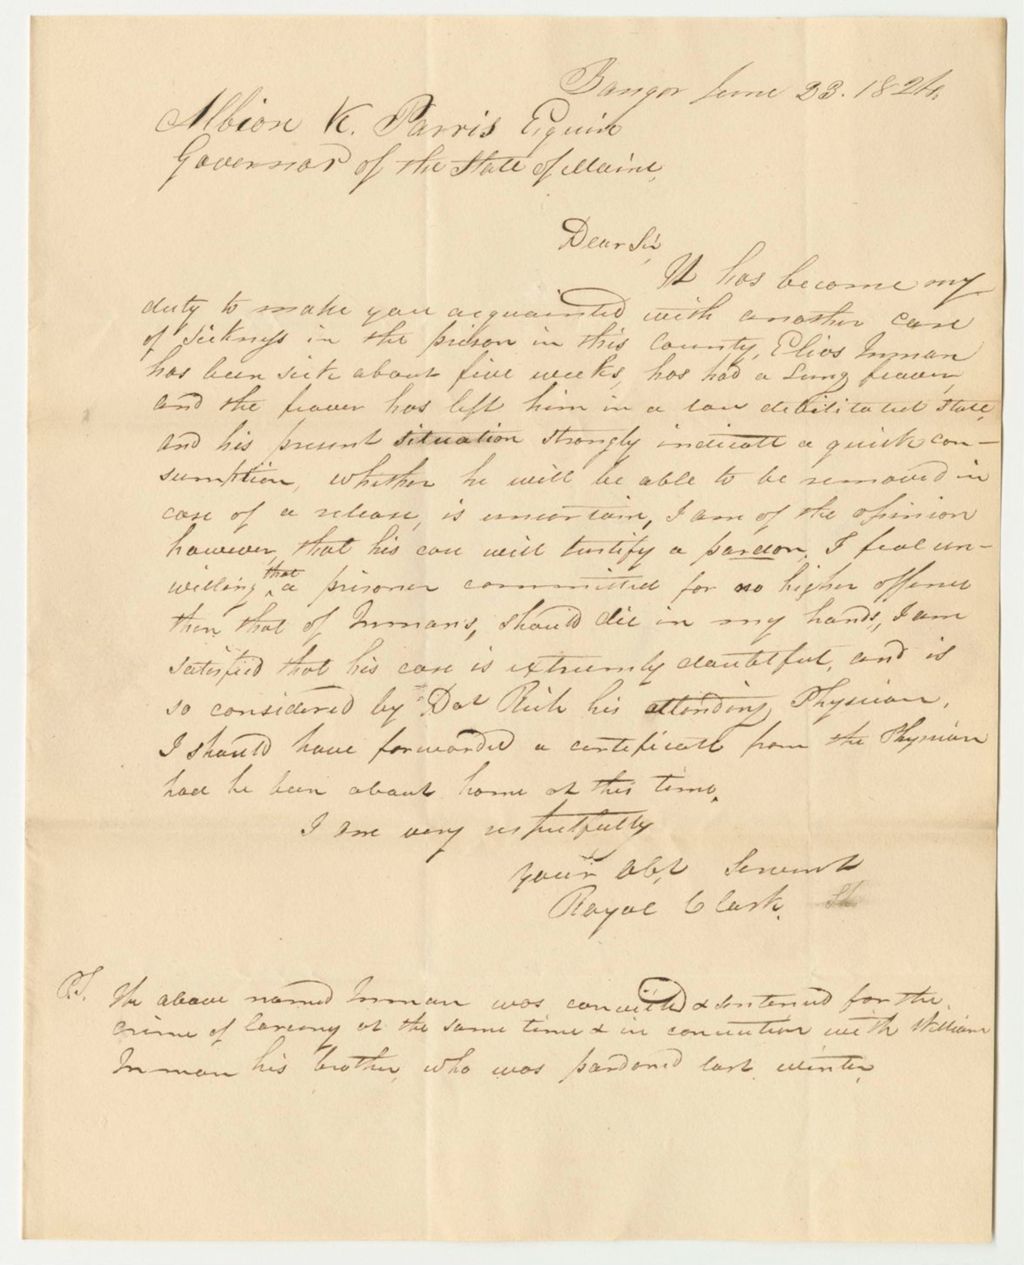 Bangor June 23. 1824,
Albion K. Parris Esquire
Governor of the State of Maine,
Dear Sir,
It has become my
duty to make you acquainted with another case
of sickness in the prison in this County, Elios Inman
has been sick about five weeks, has had a Lung feaver,
and the feaver has left him in a low debilitated state,
and his present situation strongly indicate a quick con-
sumption, whether he will be able to be removed in
case of a release, is uncertain, I am of the opinion
however, that his case will justify a pardon, I feel un-
willing that a prisoner committed for no higher offence
than that of Inmans, should die in my hands, I am
satisfied that his case is extremely doubtful, and is
so considered by Doct Rich his attending Physician,
I should have forwarded a certificate from the Physician
had he been about home at this time.
I am very respectfully
your Obt, Servant
Royal Clark.
P.S. The above named Inman was convicted & sentenced for the
crime of larceny at the same time & in connection with William
Inman his brother, who was pardoned last winter,